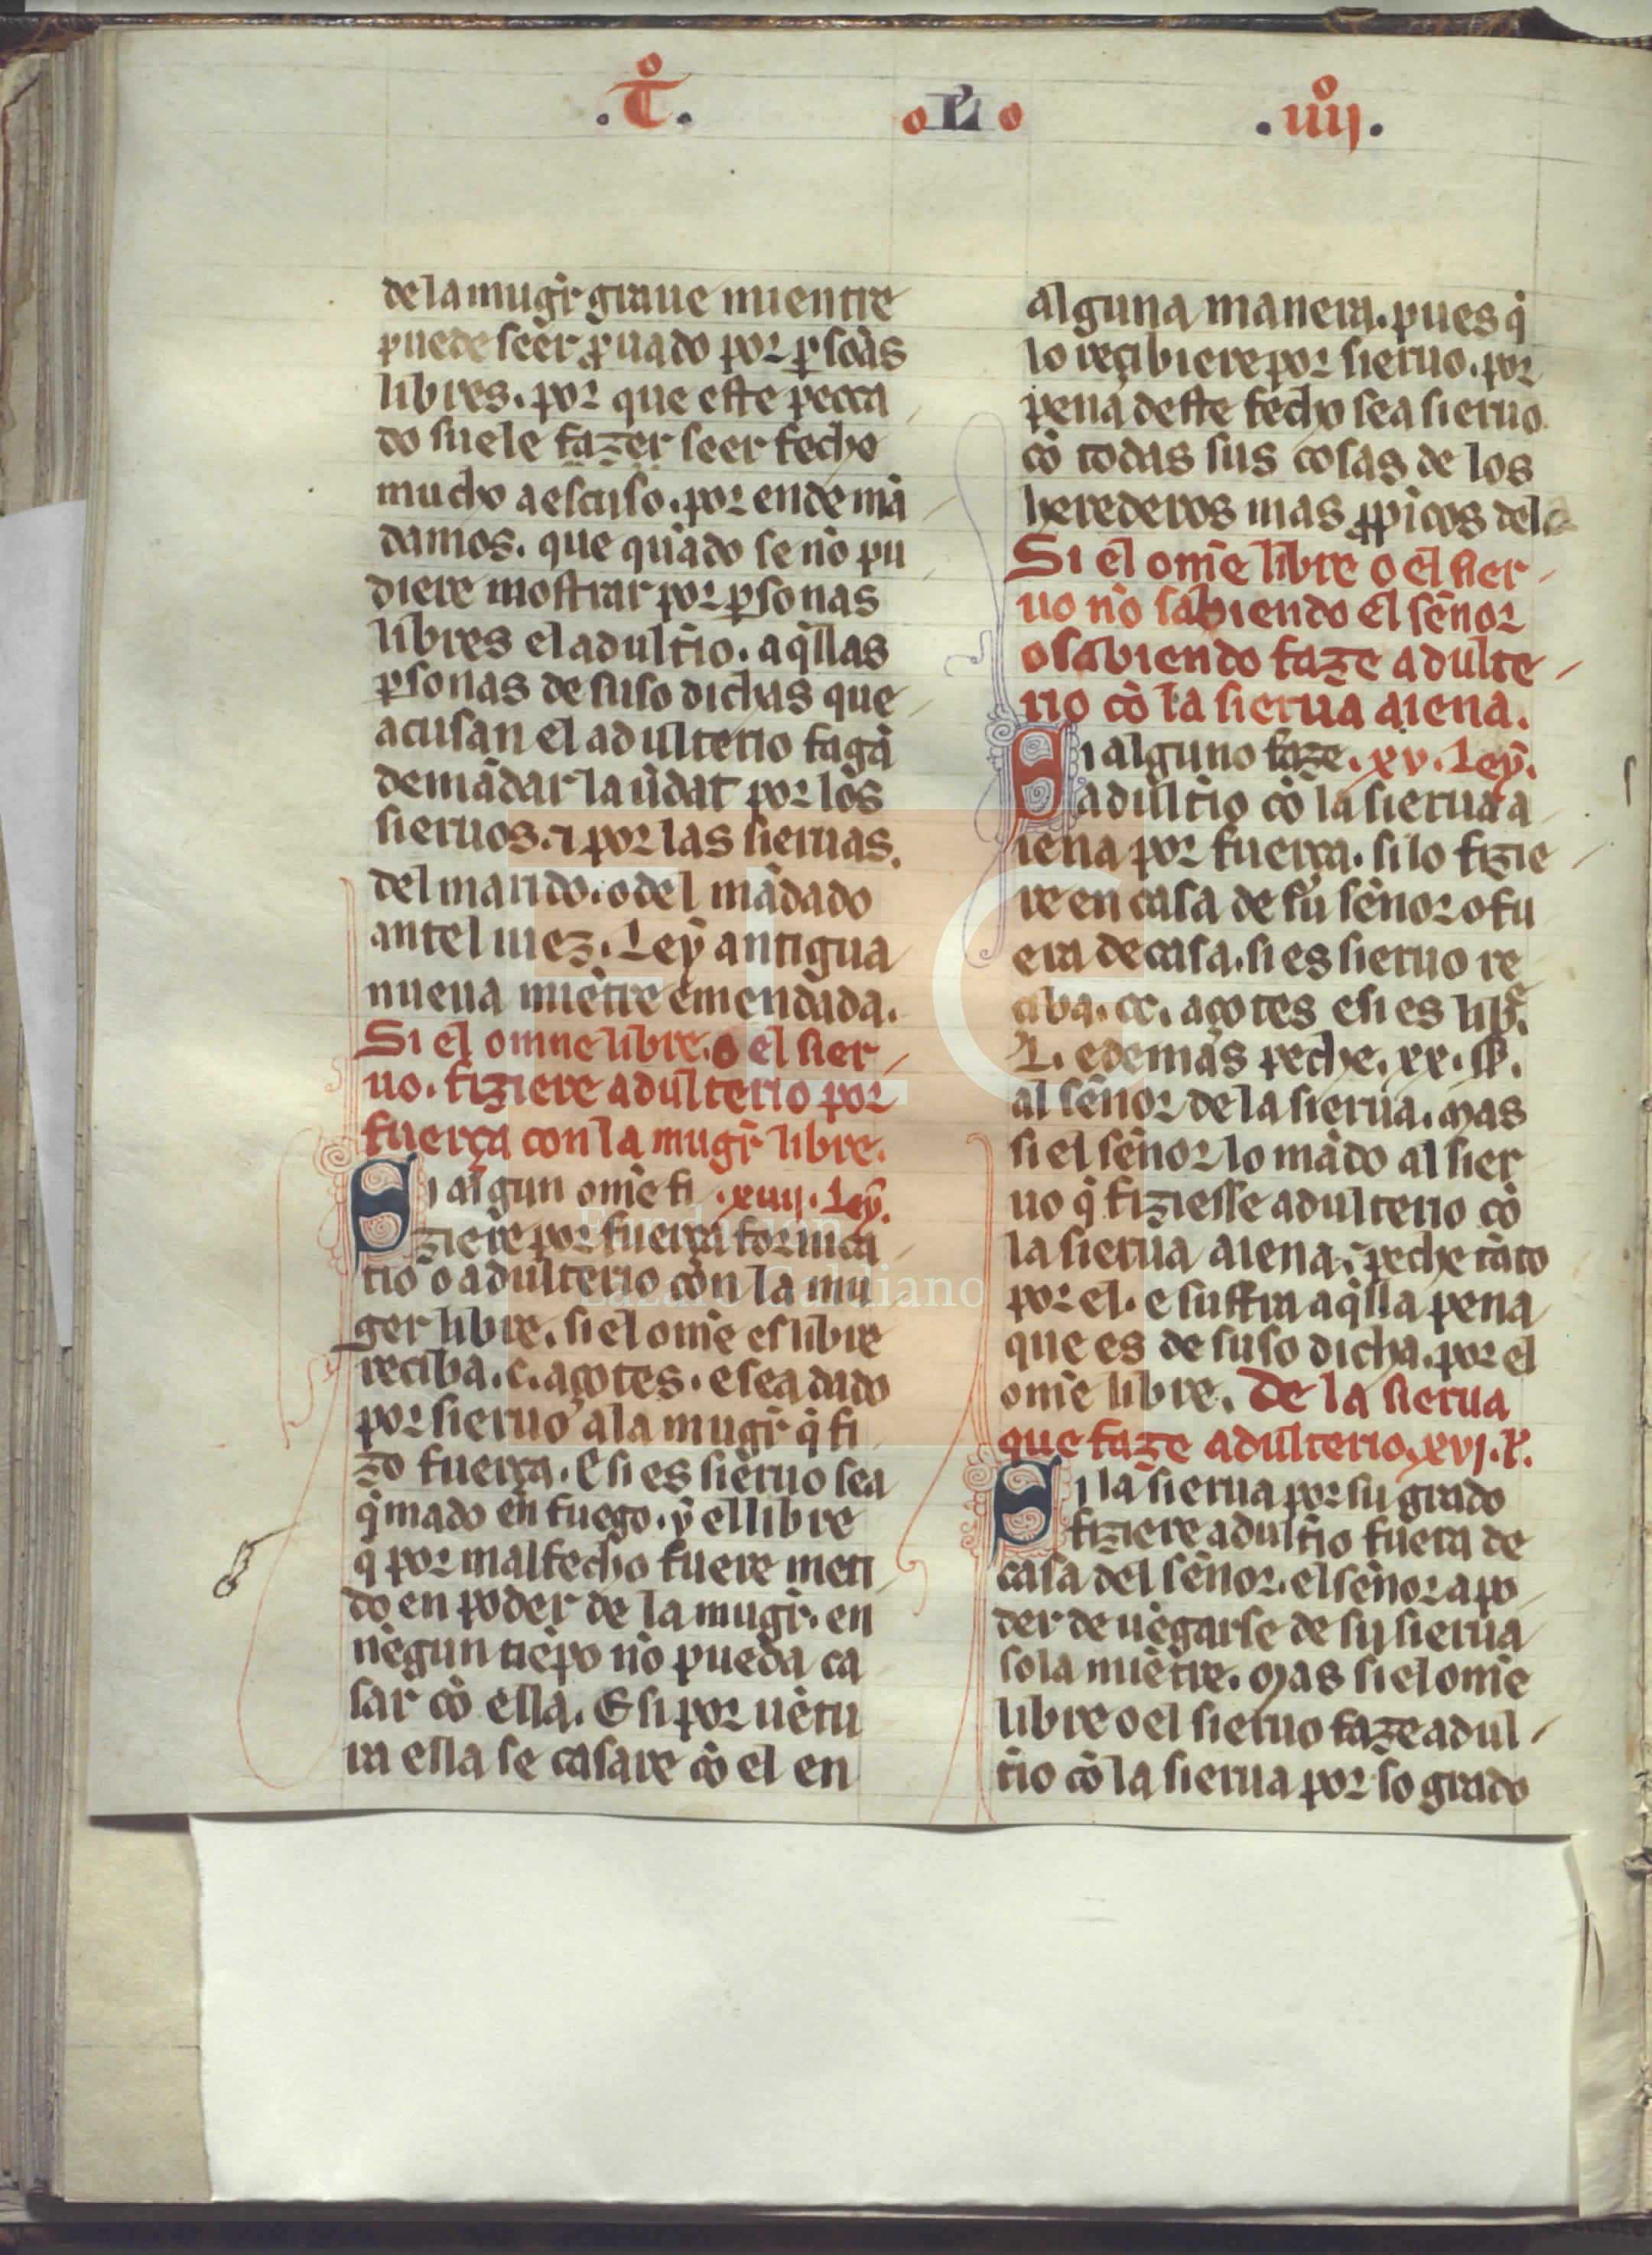 .T̊. oLͦo .iiijͦ.
de la mugr̃ graue mientre
puede seer ꝓuado por ꝑsoãs
libres. por que este pecca
do suele fazer seer fecho
mucho a escuso. por ende mã
damos. que quãdo se nõ pu
diere mostrar por ꝑsonas
libres el adult̃io. aq̃llas
ꝑsonas de suso dichas que
acusan el adulterio fagã
demãdar la ũdat por los
sieruos. ⁊ por las sieruas.
del marido. o del mãdado
antel iuez. Ley antigua
nueua miẽtre emendada.
Si el omne libre. o el sier
uo. fiziere adulterio por
fuerça con la mugr̃ libre.
Si algun om̃e fi .xiiij. Ley.
ziere por fuerça fornica
tio o adulterio con la mu
ger libre. si el om̃e es libre
reciba. c. açotes. e sea dado
por sieruo a la mugr̃ q̃ fi
zo fuerça. E si es sieruo sea
q̃mado en fuego. y el libre
q̃ por mal fecho fuere meti
do en poder de la mugr̃. en
nẽgun tiẽpo nõ pueda ca
sar cõ ella. E si por uẽtu
ra ella se casare cõ el en
alguna manera. pues q̃
lo reçibiere por sieruo. por
pena deste fecho sea sieruo
cõ todas sus cosas de los
herederos mas ꝓpicos del
Si el om̃e libre o el sier
uo nõ sabiendo el sẽnor
o sabiendo faze adulte
rio cõ la sierua aiena.
Si alguno faze. xv. Ley.
adult̃io cõ la sierua a
iena por fuerça. si lo fizie
re en casa de su sẽnor o fu
era de casa. si es sieruo re
ciba. cc. açotes e si es libr̃.
L. e demas peche. xx. ss̃.
al sẽnor de la sierua. Mas
si el sẽnor lo mãdo al sier
uo q̃ fiziesse adulterio cõ
la sierua aiena. peche tãto
por el. e suffra aq̃lla pena
que es de suso dicha. por el
om̃e libre. De la sierua
que faze adulterio. xvj. L̃.
Si la sierua por su grado
fiziere adult̃io fuera de
casa del sẽnor. el sẽnor a po
der de uẽgarse de su sierua
sola miẽtre. Mas si el om̃e
libre o el sieruo faze adul
t̃io cõ la sierua por so grado
FLG
Fundación
Lázaro Galdiano